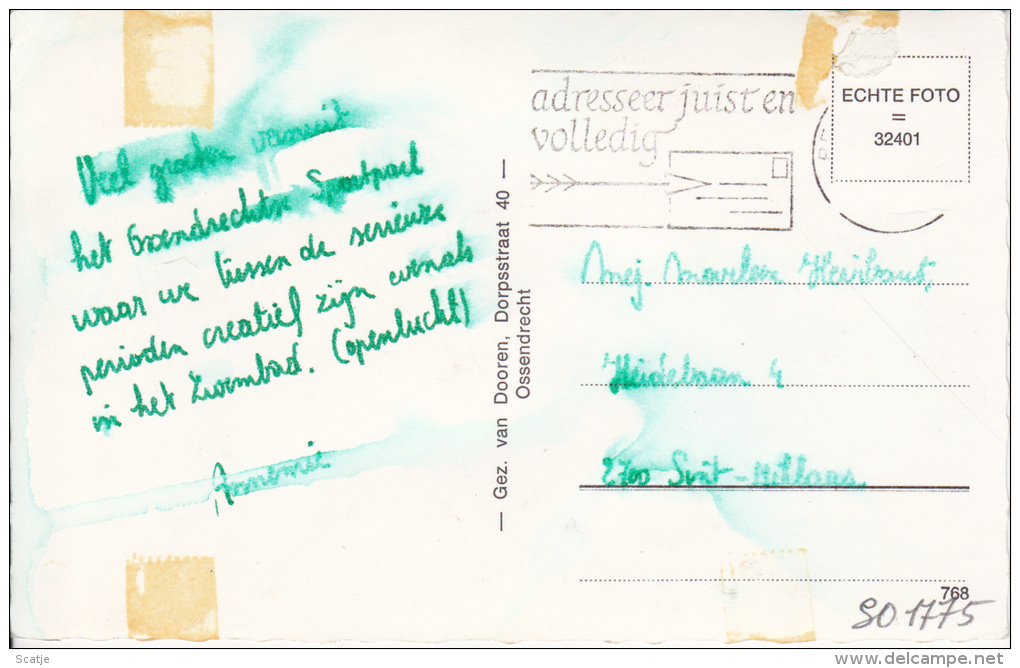 Veel groeten vanuit
het Ossendrechtse Sportpark
waar we tussen de serieuze
perioden creatief zijn evenals
in het zwembad. (openlucht)
Annemie
— Gez. van Dooren, Dorpsstraat 40 —
Ossendrecht
adresseer juist en
volledig
ECHTE FOTO
=
32401
Mej. Marleen Heirbaut,
4
2700 Sint-Niklaas
768
SO 1775
Scatje
delcampe.net